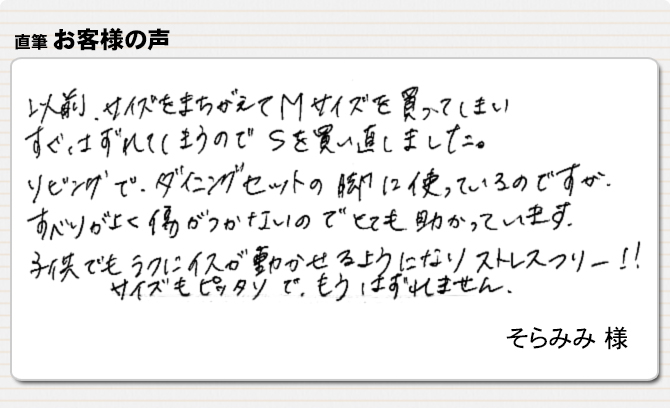 直筆 お客様の声
以前、サイズをまちがえてMサイズを買ってしまい
すぐにはずれてしまうのでSを買い直しました。
リビングで、ダイニングセットの脚に使っているのですが、
すべりがよく傷がつかないのでとても助かっています。
子供でもラクにイスが動かせるようになりストレスフリー!!
サイズもピッタリで、もうはずれません。
そらみみ 様